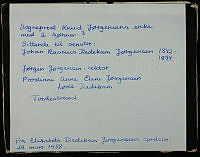 Sogneprest Knud Jørgensens enke
med 2 sønner ?
Sittende til venstre:
Johan Rasmus Dedekam Jørgensen 1842-
1894
Jørgen Jørgensen - rektor
Prostinne Anne Elene Jørgensen
født Dedekam
Tvedestrand
Fra Elisabeth Dedekam Jørgensens
24 mars 1958